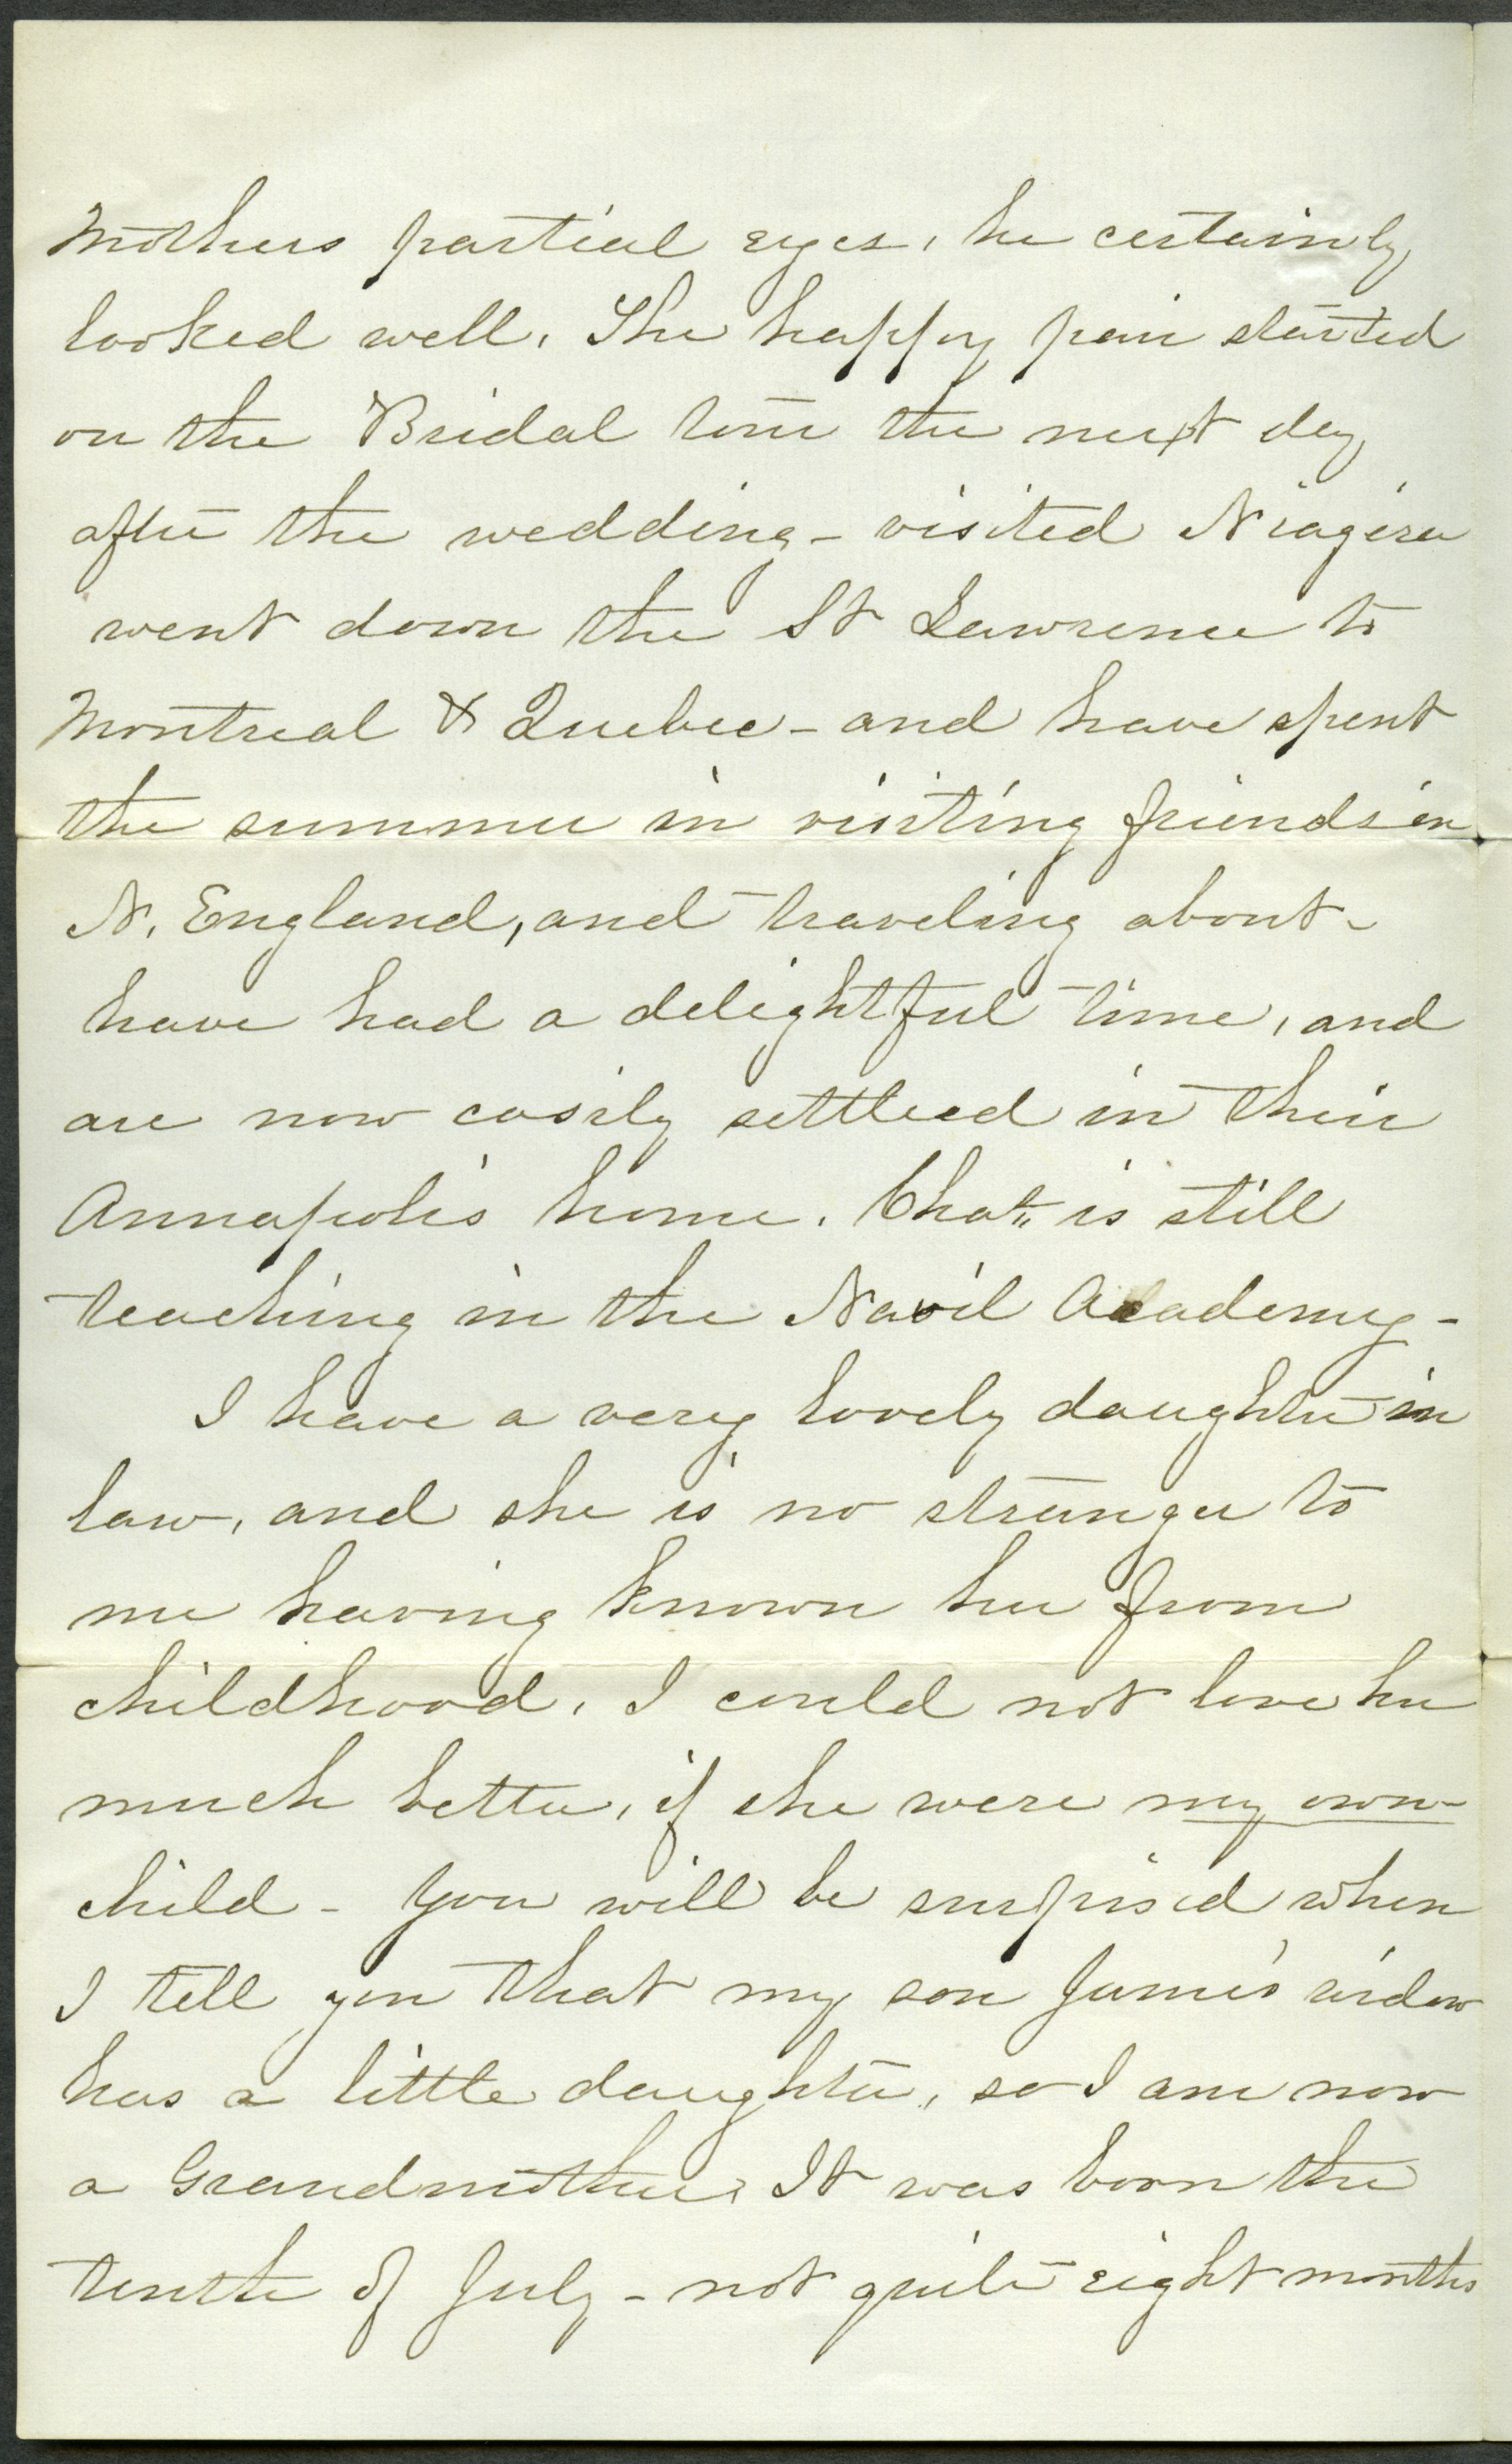 Mothers partial eyes, he certainly
looked well. The happy pair started
on the Bridal tour the next day
after the wedding - visited Niagera
went down the St Lawrence to
Montreal & Quebec - and have spent
the summer in visiting friends in
N. England, and traveling about -
have had a delightful time, and
are now cosily settled in their
Annapolis home. Chas is still
teaching in the Navil Academy -
I have a very lovely daughter in
law, and she is no stranger to
me having known her from
childhood. I could not love her
much better, if she were my own
child - You will be surprised when
I tell you that my son James widow
has a little daughter, so I am now
a Grandmother. It was born the
tenth of July - not quite eight months